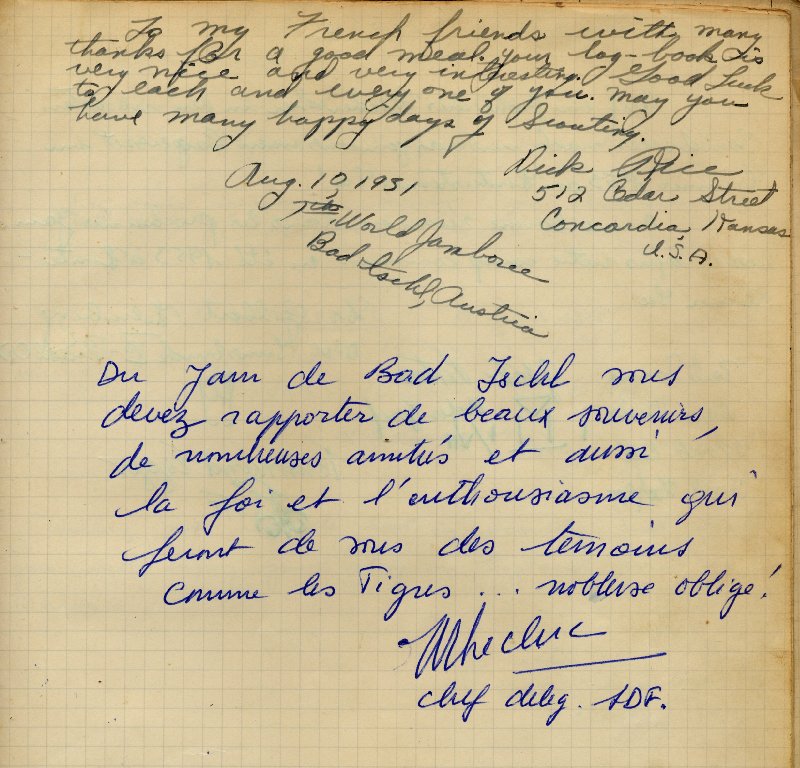 To my French friends with many
thanks for a good meal. your log-book is
very nice and very intresting. Good Luck
to each and every one of you. May you
have many happy days of Scouting.
Dick Rice
Aug. 10, 1951
512 Cedar Street
7th World Jamboree
Concordia, Kansas
U.S.A.
Bad Ischl, Austria
Du Jam de Bad Ischl vous
devez rapporter de beaux souvenirs,
de nombreuses amitiés et aussi
la foi et l'enthousiasme qui
feront de vous des temoins
comme les Tigres ... noblesse oblige!
chef deleg. SDF.